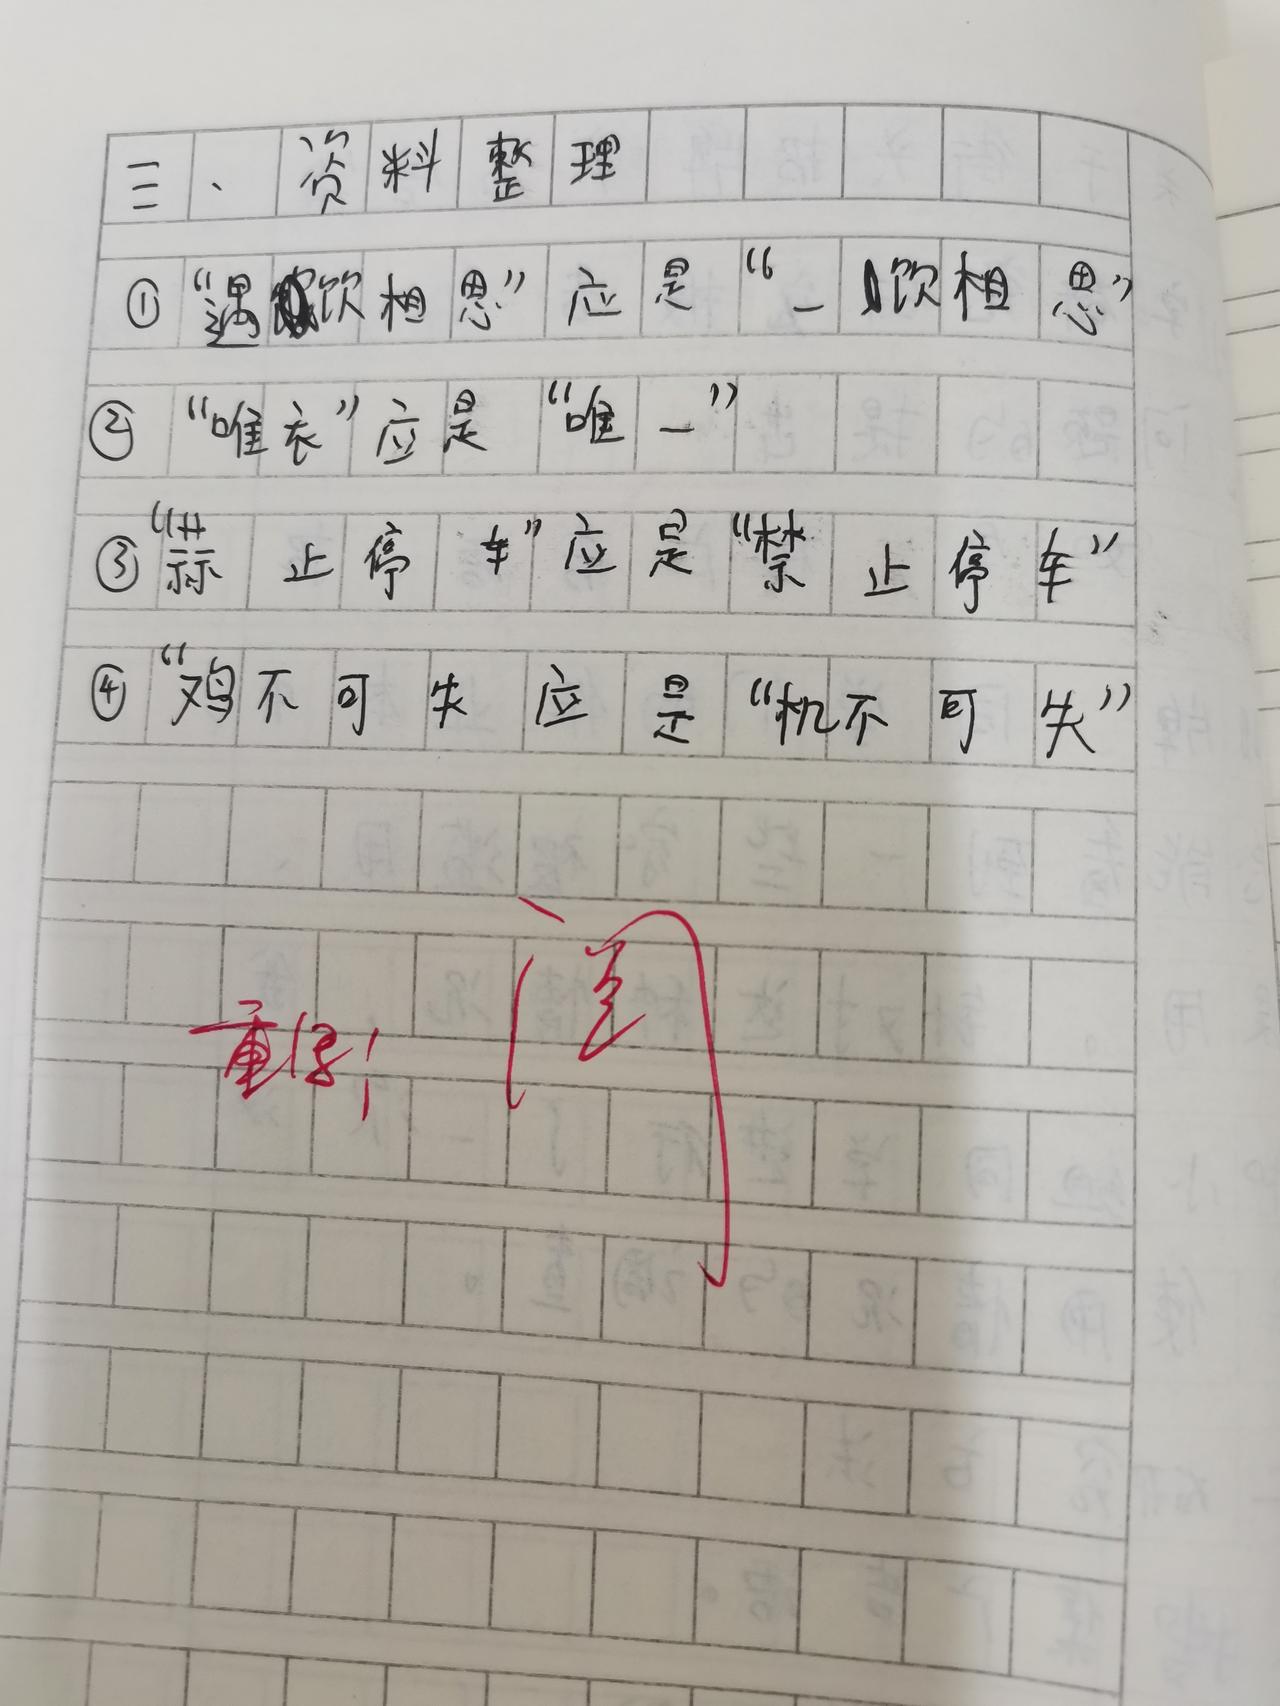 三、资料整理
①“遇饮相思”应是“一饮相思”
②“唯衣”应是“唯一”
③“蒜止停车”应是“禁止停车”
④“鸡不可失应是“机不可失”
阅
重写!